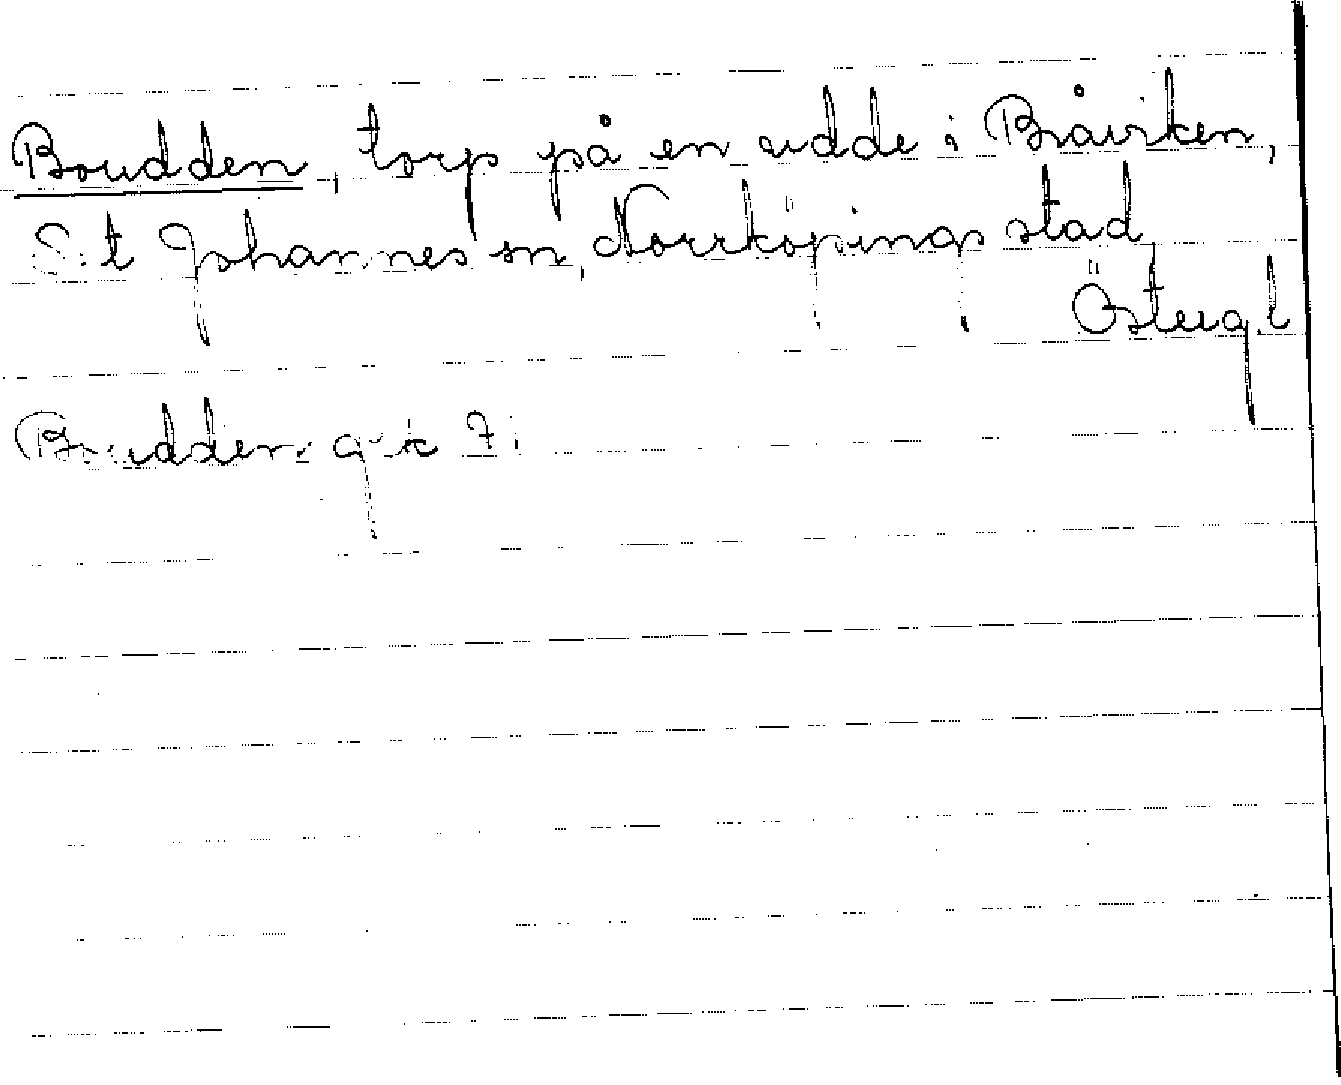 Boudden, torp på en udde i Bråviken,
S:t Johannes sn, Norrköpings stad,
Östergl
Boudden gek 7i